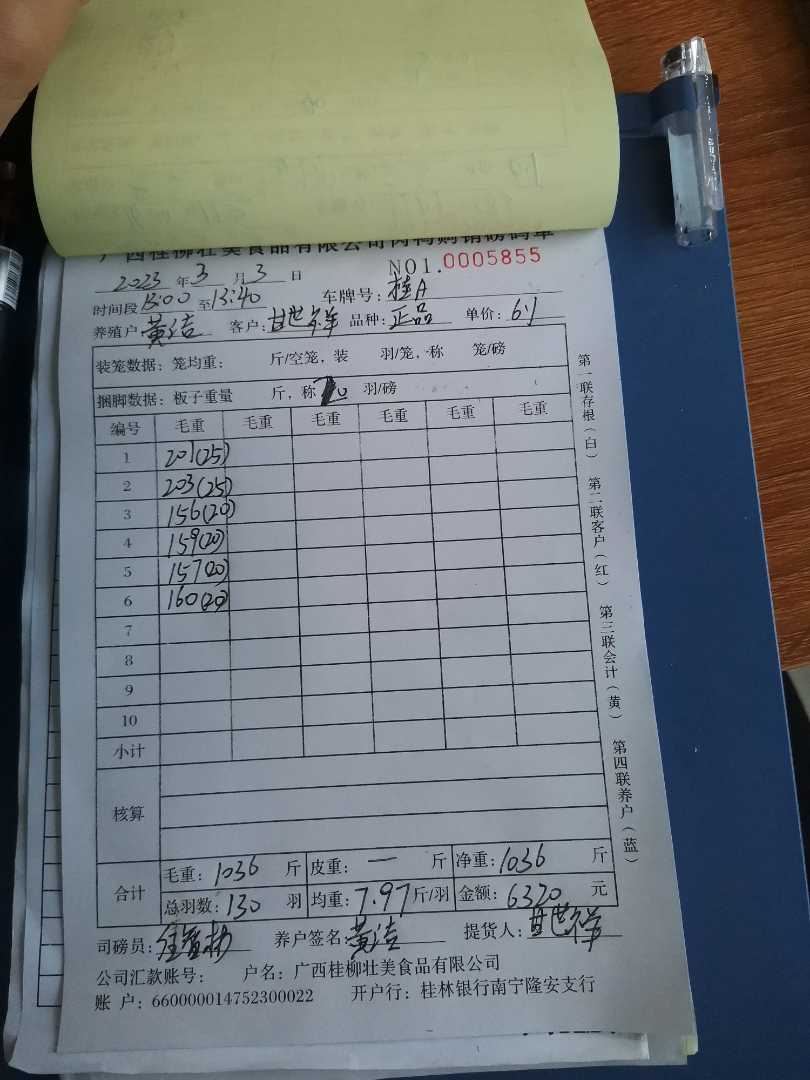 广西桂柳壮美食品有限公司肉鸭购销磅码单
NO1.0005855
2023年3月3日
时间段13:00至13:40 车牌号:桂A
养殖户黄洁 客户:甘世祥 品种:正品 单价:6.1
装笼数据:笼均重: 斤/空笼,装 羽/笼,称 笼/磅
捆脚数据:板子重量 斤,称20羽/磅
编号 毛重 毛重 毛重 毛重 毛重 毛重
1 201(25)
2 203(25)
3 156(20)
4 159(20)
5 157(20)
6 160(20)
7
8
9
10
小计
核算
合计 毛重:1036斤 皮重:一斤 净重:1036斤
总羽数:130羽 均重:7.97斤/羽 金额:6320元
司磅员: 养户签名:黄洁 提货人:甘世祥
公司汇款账号: 户名:广西桂柳壮美食品有限公司
账 户:660000014752300022 开户行:桂林银行南宁隆安支行
第一联存根(白) 第二联客户(红) 第三联会计(黄) 第四联养户(蓝)